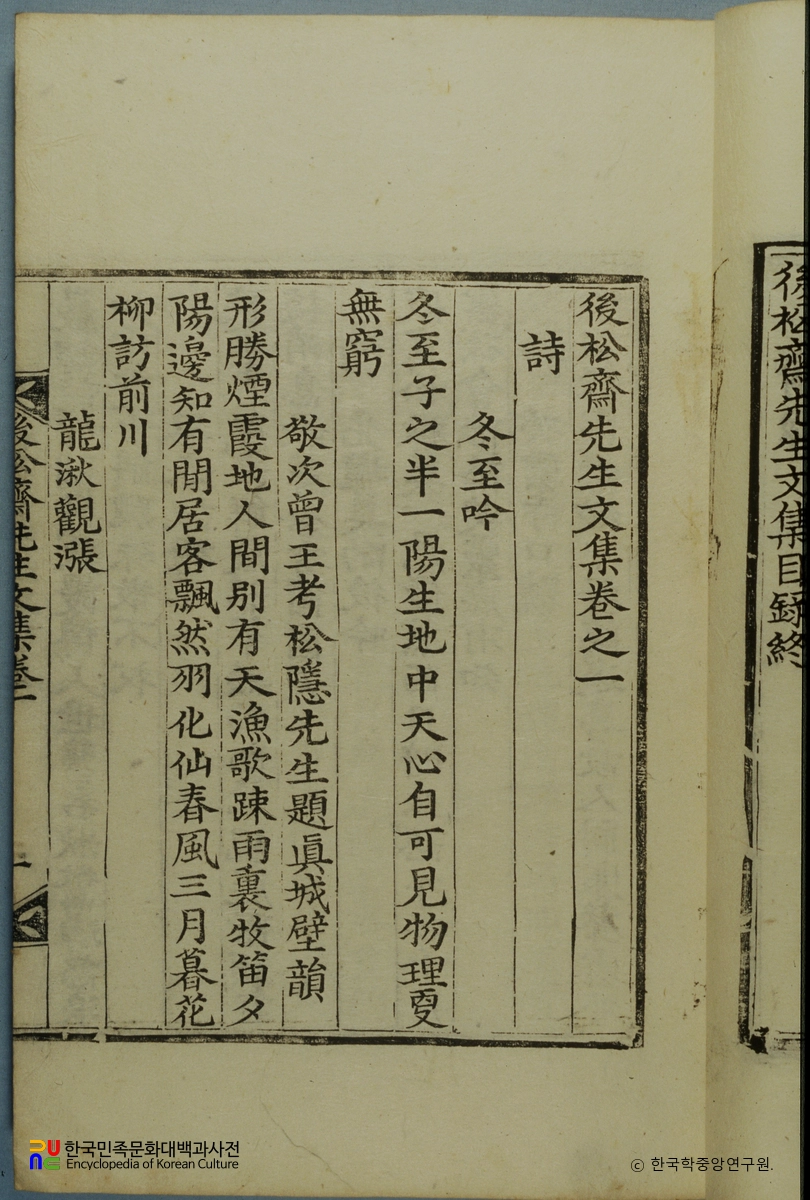 後松齋先生文集目録終
後松齋先生文集卷之一
詩
冬至吟
冬至子之半一陽生地中天心自可見物理夐
無窮
敬次曾王考松隱先生題眞城壁韻
形勝煙霞地人間別有天漁歌踈雨裏牧笛夕
陽邊知有閒居客飄然羽化仙春風三月暮花
柳訪前川
龍湫觀漲
後松齋先生文集卷一
一
한국민족문화대백과사전
Encyclopedia of Korean Culture
ⓒ 한국학중앙연구원.